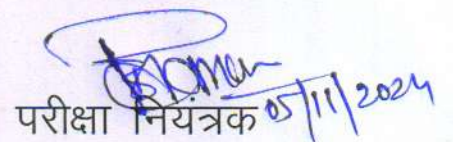 परीक्षा नियंत्रक 05/11/2024